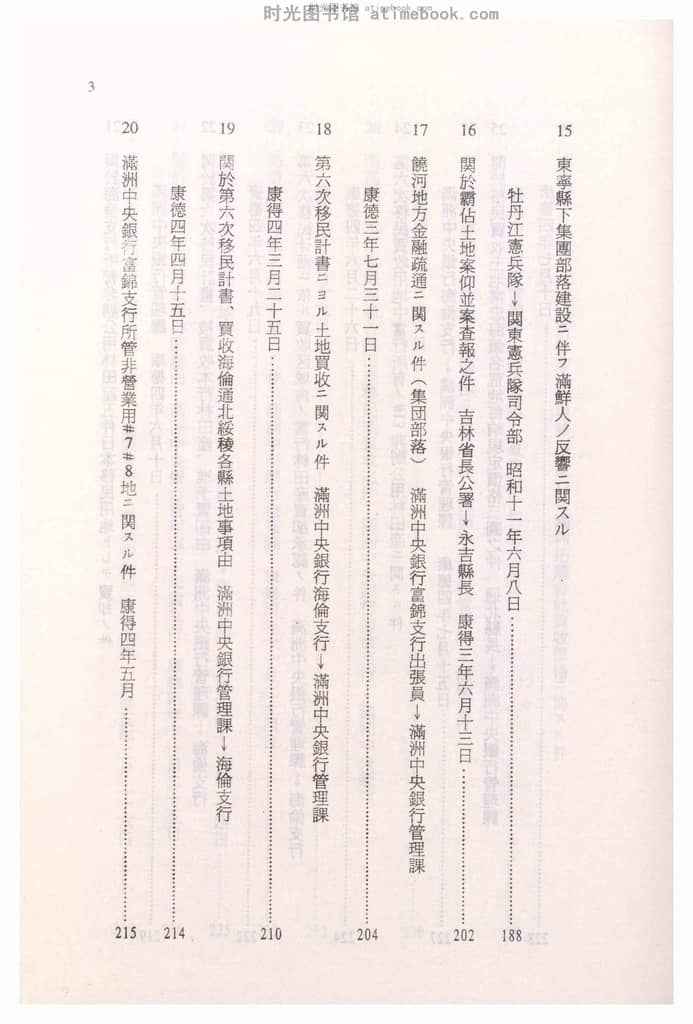 时光图书馆 atimebook.com
3
15 東寧縣下集團部落建設ニ伴フ滿鮮人ノ反響ニ関スル
牡丹江憲兵隊→関東憲兵隊司令部 昭和十一年六月八日……188
16 関於霸佔土地案仰並案査報之件 吉林省長公署→永吉縣長 康得三年六月十三日……202
17 饒河地方金融疏通ニ関スル件(集団部落) 滿洲中央銀行富錦支行出張員→滿洲中央銀行管理課
康德三年七月三十一日……204
18 第六次移民計書ニヨル土地買收ニ関スル件 滿洲中央銀行海倫支行→滿洲中央銀行管理課
康得四年三月二十五日……210
19 関於第六次移民計書、買收海倫通北綏稜各縣土地事項由 滿洲中央銀行管理課→海倫支行
康德四年四月十五日……214
20 滿洲中央銀行富錦支行所管非營業用#7#8地ニ関スル件 康得四年五月……215